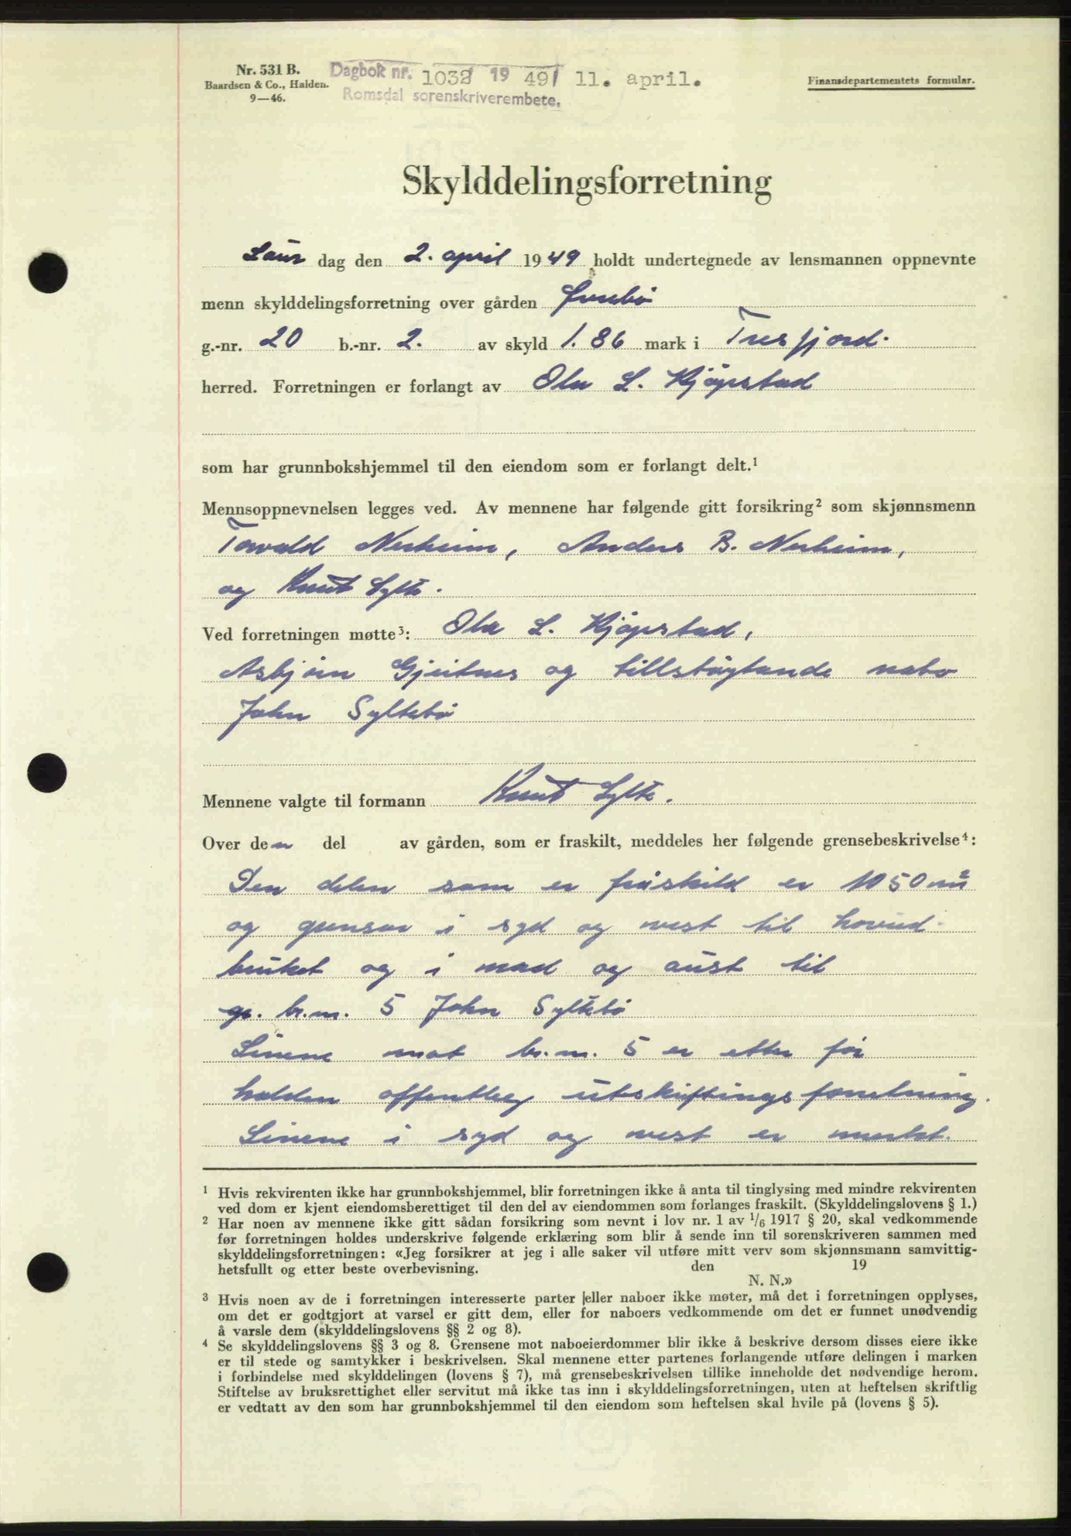 Nr. 531 B.
Baardsen & Co., Halden.
9—46.
Dagbok nr. 1038 1949 11. april.
Romsdal sorenskriverembete.
Finansdepartementets formular.
Skylddelingsforretning
Laur dag den 2. april 1949 holdt undertegnede av lensmannen oppnevnte
menn skylddelingsforretning over gården
g.-nr. 20 b.-nr. 2. av skyld 1.86 mark i Tresfjord.
herred. Forretningen er forlangt av Ola L. Kjöpstad
som har grunnbokshjemmel til den eiendom som er forlangt delt.¹
Mennsoppnevnelsen legges ved. Av mennene har følgende gitt forsikring² som skjønnsmenn
Torvald Nerheim, Anders B. Nerheim,
og Knut Sylte.
Ved forretningen møtte³: Ola L. Kjöpstad,
Asbjörn Gjeitnes og tillstöytande nabo
John Syltebö
Mennene valgte til formann Knut Sylte.
Over den del av gården, som er fraskilt, meddeles her følgende grensebeskrivelse⁴:
Den delen som er fråskild er 1050 m²
og grensar i syd og vest til hovud-
bruket og i nord og aust til
gr. br.nr. 5 John Syltebö
Linene mot br.nr. 5 er etter før
halden offentleg utskiftingsforretning.
Linene i syd og vest er merkt.
¹ Hvis rekvirenten ikke har grunnbokshjemmel, blir forretningen ikke å anta til tinglysing med mindre rekvirenten
ved dom er kjent eiendomsberettiget til den del av eiendommen som forlanges fraskilt. (Skylddelingslovens § 1.)
² Har noen av mennene ikke gitt sådan forsikring som nevnt i lov nr. 1 av 1/6 1917 § 20, skal vedkommende
før forretningen holdes underskrive følgende erklæring som blir å sende inn til sorenskriveren sammen med
skylddelingsforretningen: «Jeg forsikrer at jeg i alle saker vil utføre mitt verv som skjønnsmann samvittig-
hetsfullt og etter beste overbevisning. den 19
N. N.»
³ Hvis noen av de i forretningen interesserte parter eller naboer ikke møter, må det i forretningen opplyses,
om det er godtgjort at varsel er gitt dem, eller for naboers vedkommende om det er funnet unødvendig
å varsle dem (skylddelingslovens §§ 2 og 8).
⁴ Se skylddelingslovens §§ 3 og 8. Grensene mot naboeierdommer blir ikke å beskrive dersom disses eiere ikke
er til stede og samtykker i beskrivelsen. Skal mennene etter partenes forlangende utføre delingen i marken
i forbindelse med skylddelingen (lovens § 7), må grensebeskrivelsen tillike inneholde det nødvendige herom.
Stiftelse av bruksrettighet eller servitut må ikke tas inn i skylddelingsforretningen, uten at heftelsen skriftlig
er vedtatt av den som har grunnbokshjemmel til den eiendom som heftelsen skal hvile på (lovens § 5).